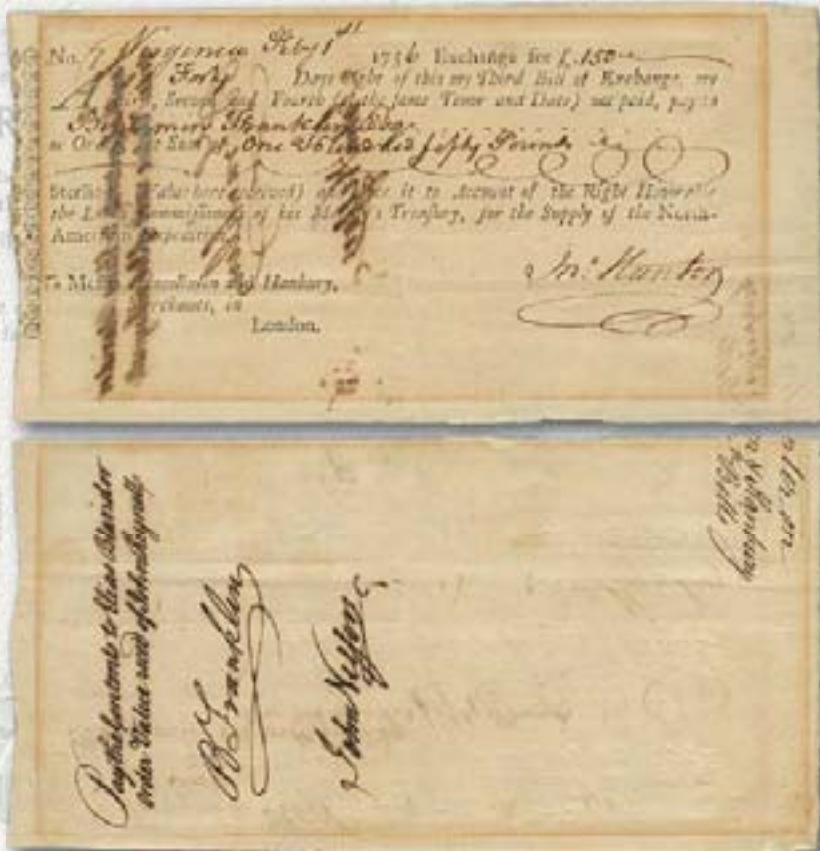 No. 7 Virginia Feby 1st 1756 Exchange for £.150
Forty Days Sight of this my Third Bill of Exchange, my
First, Second and Fourth (of the same Tenor and Date) not paid, pay to
Benjamin Franklin Esqr.
or Order the Sum of One Hundred fifty Pounds
Sterling (Value here received) and place it to Account of the Right Honorable
the Lords Commissioners of his Majesty's Treasury, for the Supply of the North-
American Expedition.
To Messrs. and Hanbury,
Merchants, in
London.
Jno. Hunter
Pay the Contents to Elias Bland or
order Value recd of John
B Franklin
John
Hanbury